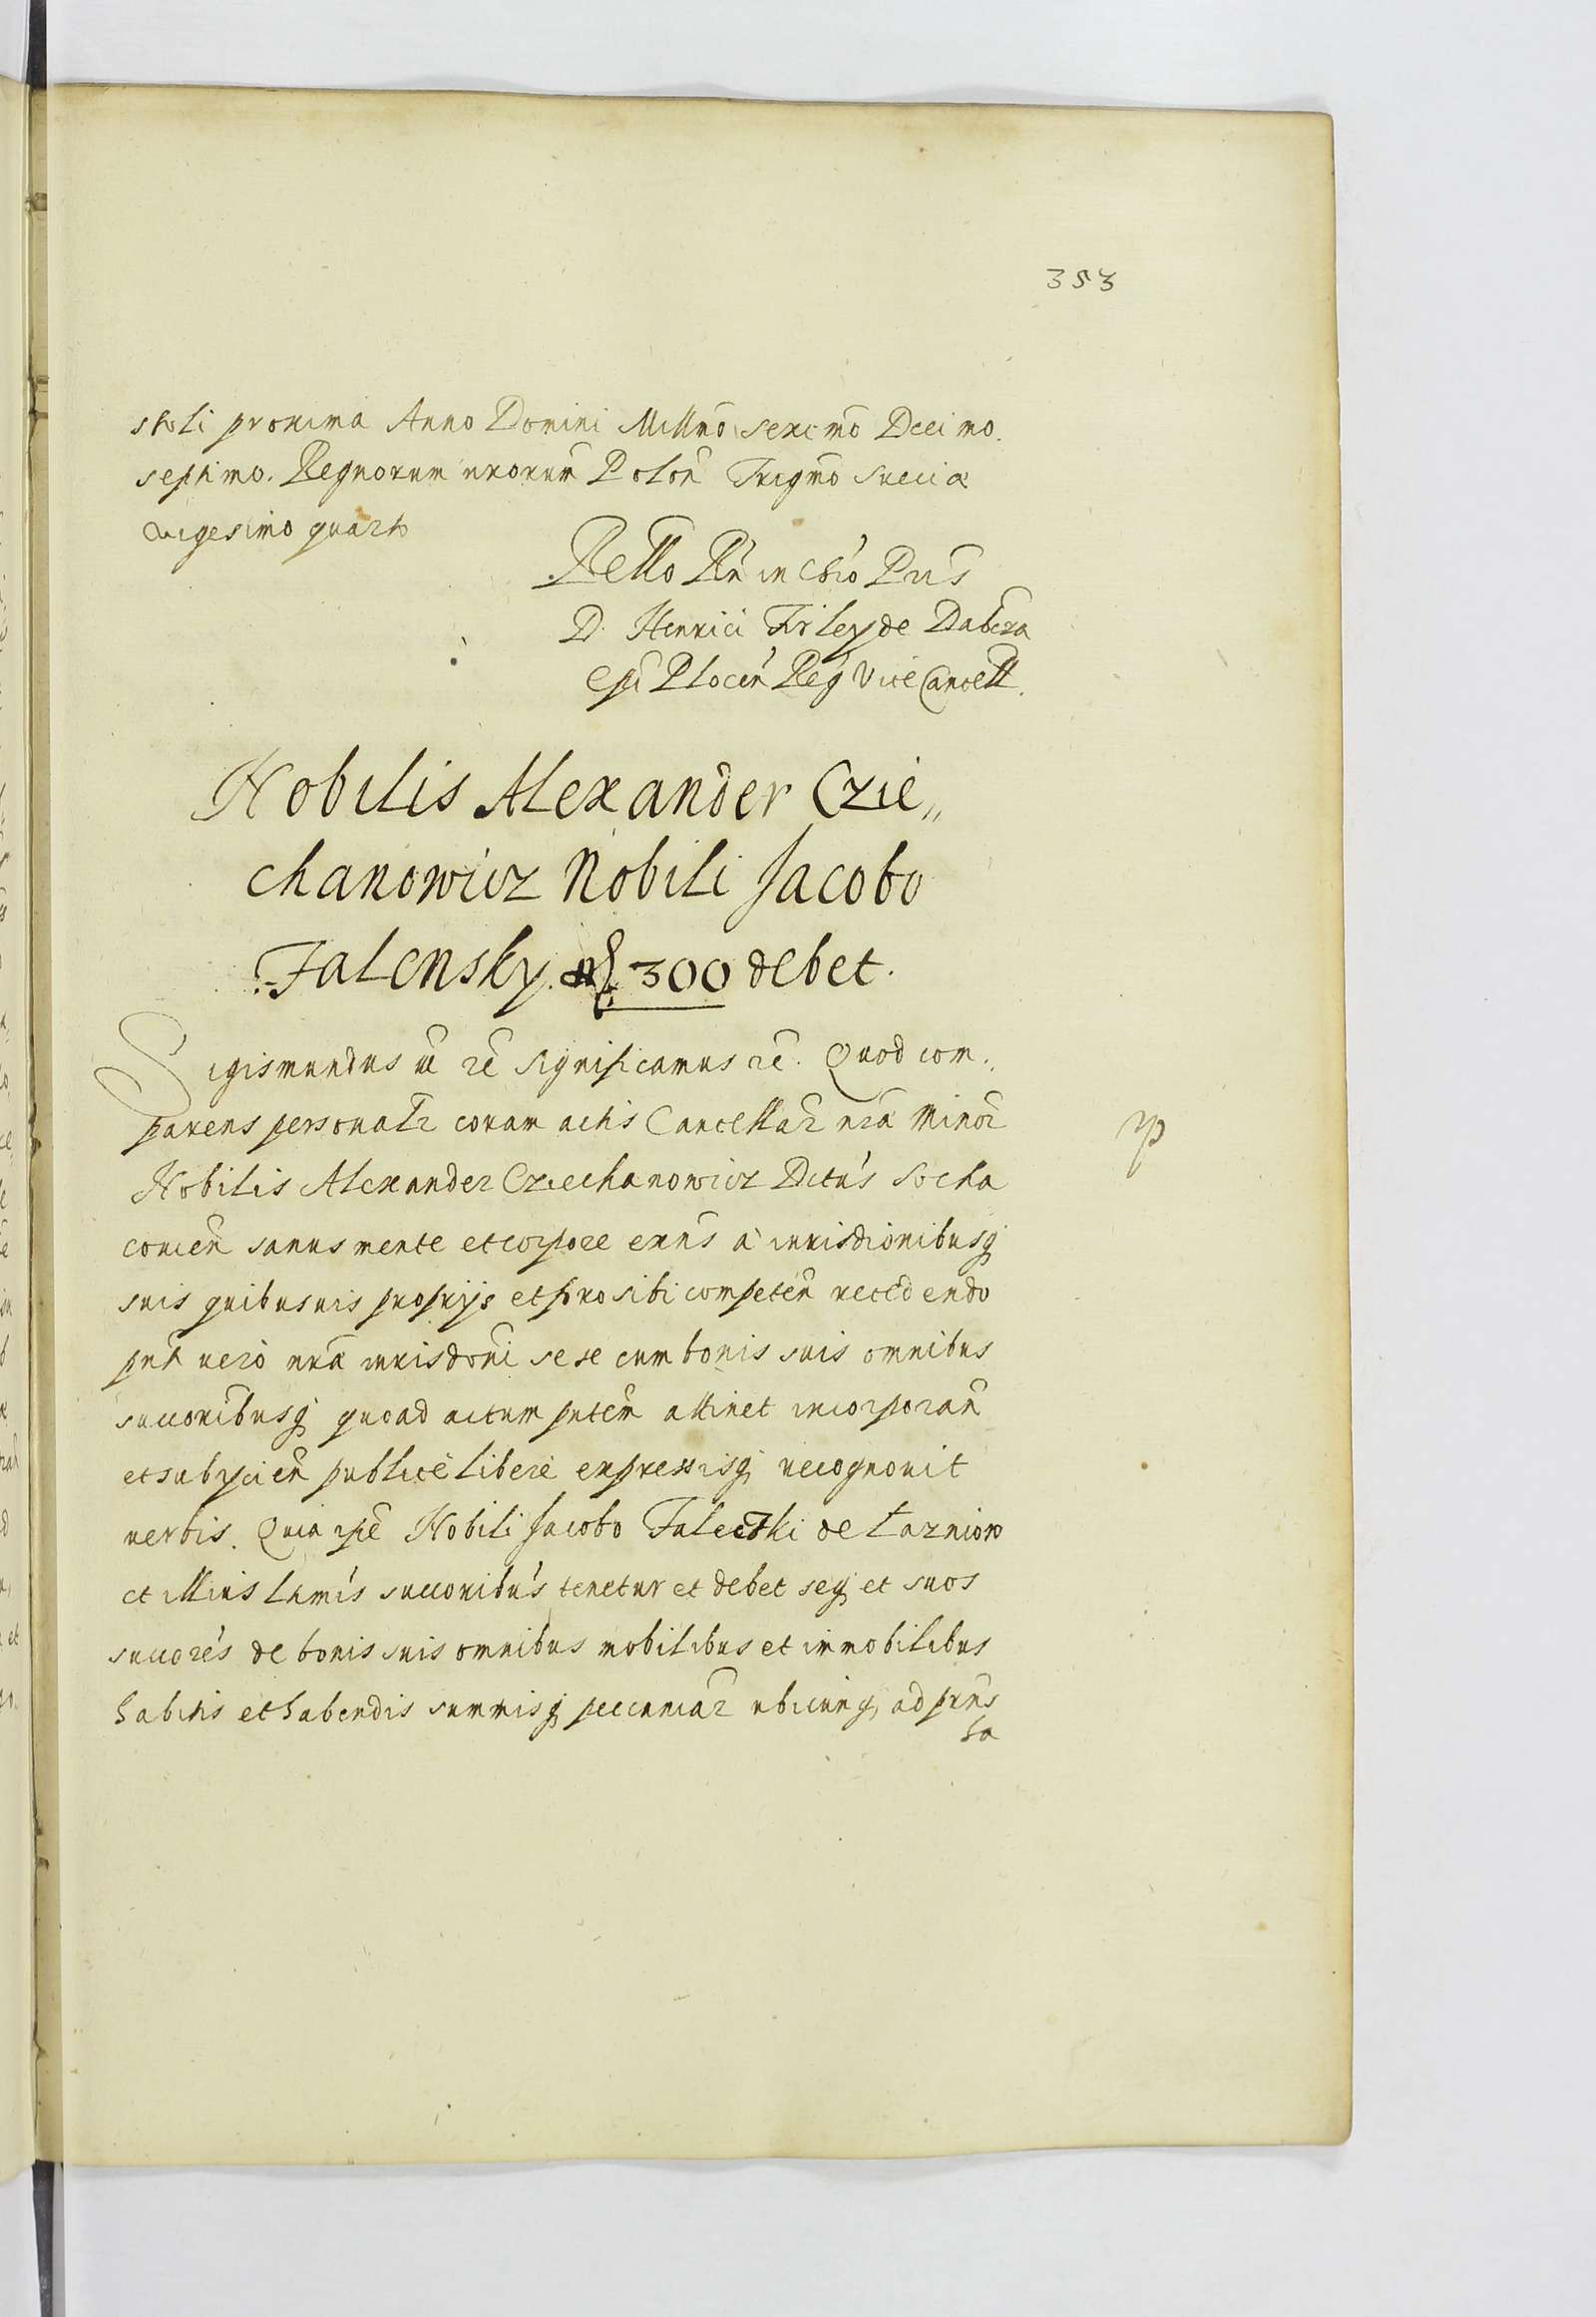 353
stoli proxima Anno Domini Millmo sexcmo Decimo
septimo. Regnorum nrorum Polon Trigmo Sueciæ
vigesimo quarto
Rello Rn in Chro Pris
D. Henrici Firley de Dabrza
Epi Plocen Reg Vice Cancell.
Nobilis Alexander Czie„
chanowicz Nobili Jacobo
Falensky. 300 debet.
Sigismundus etc etc Significamus etc. Quod com.
parens personalr coram actis Cancellar nra Minor
Nobilis Alexander Cziechanowicz Dctus Socha
concen sanus mente et corpore exns à iurisdionibusq
suis quibusuis proprijs et pro sibi competen recedendo
pnt uero nra iurisdoni sese cum bonis suis omnibus
succoribusq quoad actum pntem attinet incorporan
et subijcien publicè liberè expressisq recognouit
verbis. Quia ipe Nobili Jacobo Faleczki de Łazniow
et illius ltimis succoribus tenetur et debet seq et suos
succores de bonis suis omnibus mobilibus et immobilibus
habitis et habendis summisq pecuniar ubicunq ad prns
ha